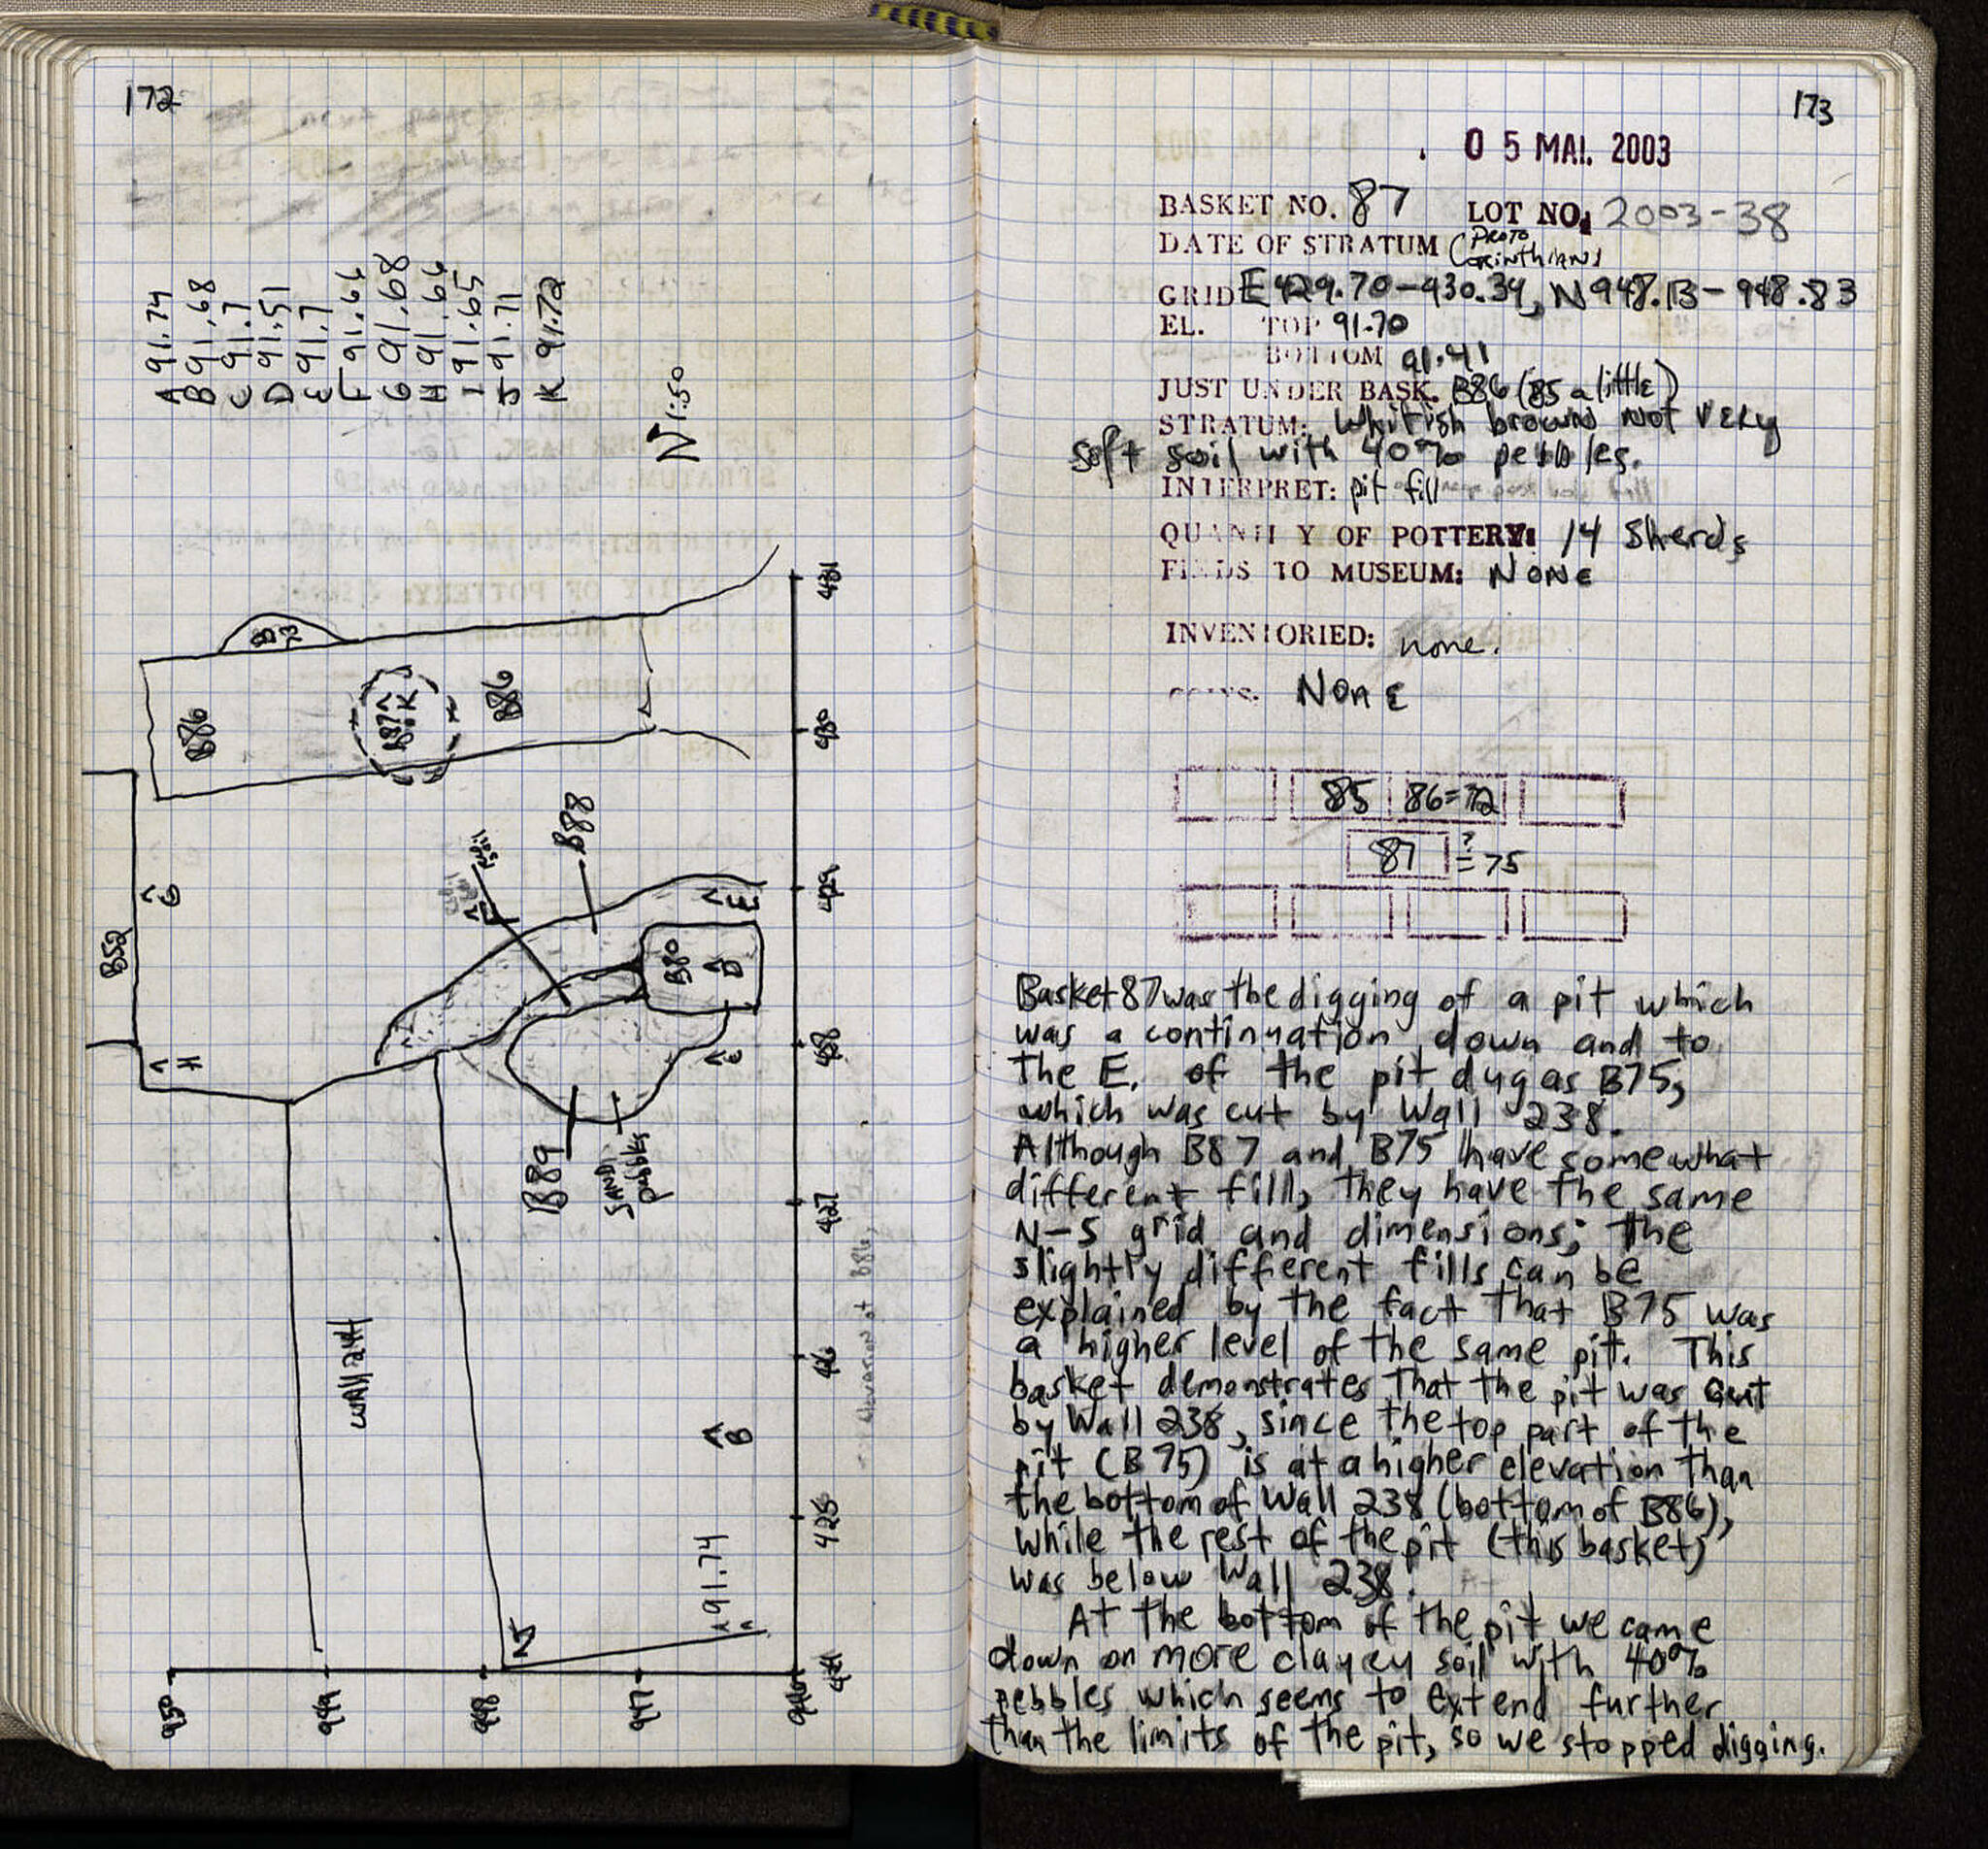 172
A 91.74
B 91.68
C 91.7
D 91.51
E 91.7
F 91.66
G 91.68
H 91.66
I 91.65
J 91.71
K 91.72
N 1:50
B
73
B86
B87
K
J
B86
B52
G
H
I
F
B88
E
B80
D
C
B89
SANDI
pebbles
Wall 244
B
A 91.74
N
431
430
429
428
427
426
425
424
950
949
948
947
946
173
05 MAI. 2003
BASKET NO. 87 LOT NO. 2003-38
DATE OF STRATUM Proto
Corinthian
GRID E 429.70-430.34, N 948.13-948.83
EL. TOP 91.70
BOTTOM 91.41
JUST UNDER BASK. B86 (85 a little)
STRATUM: Whitish brown not very
soft soil with 40% pebbles.
INTERPRET: pit fill
QUANTITY OF POTTERY: 14 Sherds
FINDS TO MUSEUM: None
INVENTORIED: none.
COINS. None
85 86=72
87 ?= 75
Basket 87 was the digging of a pit which
was a continuation down and to
the E. of the pit dug as B75,
which was cut by Wall 238.
Although B87 and B75 have somewhat
different fill, they have the same
N-S grid and dimensions; the
slightly different fills can be
explained by the fact that B75 was
a higher level of the same pit. This
basket demonstrates that the pit was cut
by Wall 238, since the top part of the
pit (B75) is at a higher elevation than
the bottom of Wall 238 (bottom of B86),
while the rest of the pit (this basket)
was below Wall 238.
At the bottom of the pit we came
down on more clayey soil with 40%
pebbles which seems to extend further
than the limits of the pit, so we stopped digging.